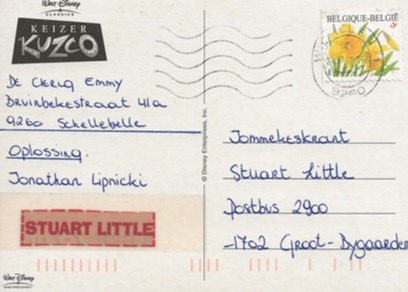 WALT DISNEY
CLASSICS
KEIZER
KUZCO
De Clercq Emmy
Bruinbekestraat 41a
9260 Schellebelle
Oplossing:
Jonathan Lipnicki
STUART LITTLE
WALT DISNEY
© Disney Enterprises, Inc.
BELGIQUE-BELGIË
9260
Jommekeskrant
Stuart Little
Postbus 2900
-1702 Groot-Bijgaarden